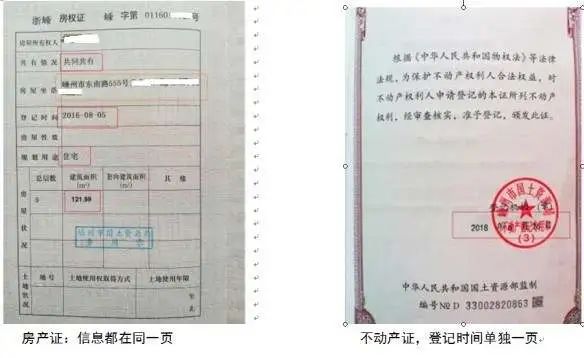 浙嵊 房权证 嵊 字第 01160 号
房屋所有权人
共有情况 共同共有
房屋坐落 嵊州市东南路555号
登记时间 2016-08-05
房屋性质
规划用途 住宅
房屋状况
总层数 建筑面积(m²) 套内建筑面积(m²) 其他
121.99
嵊州市国土资源局
土地状况
地号 土地使用权取得方式 土地使用年限
年 止
房产证：信息都在同一页
根据《中华人民共和国物权法》等法律
法规，为保护不动产权利人合法权益，对
不动产权利人申请登记的本证所列不动产
权利，经审查核实，准予登记，颁发此证。
嵊州市国土资源局
登记机构（章）
2018
(3)
中华人民共和国国土资源部监制
编号№D 33002820863
不动产证，登记时间单独一页。